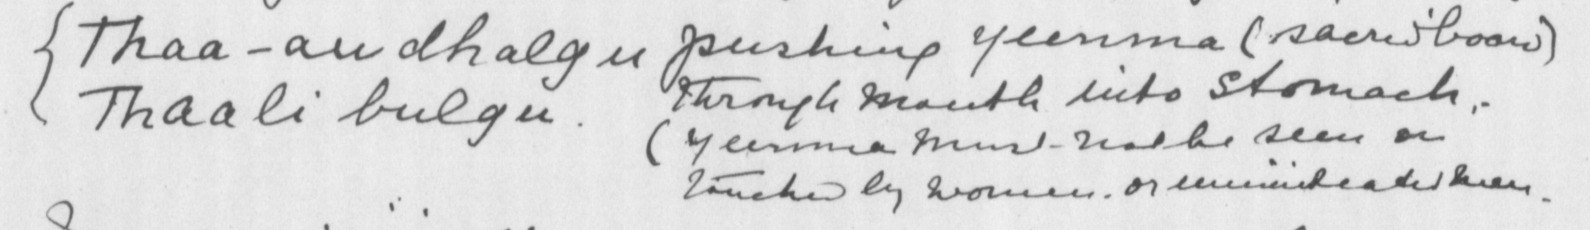 Thaa-audhalgu pushing yeenma (sacred board)
Thaali bulgu. through mouth into stomach.
(yeenma must not be seen or
touched by women. or uninitiated men.